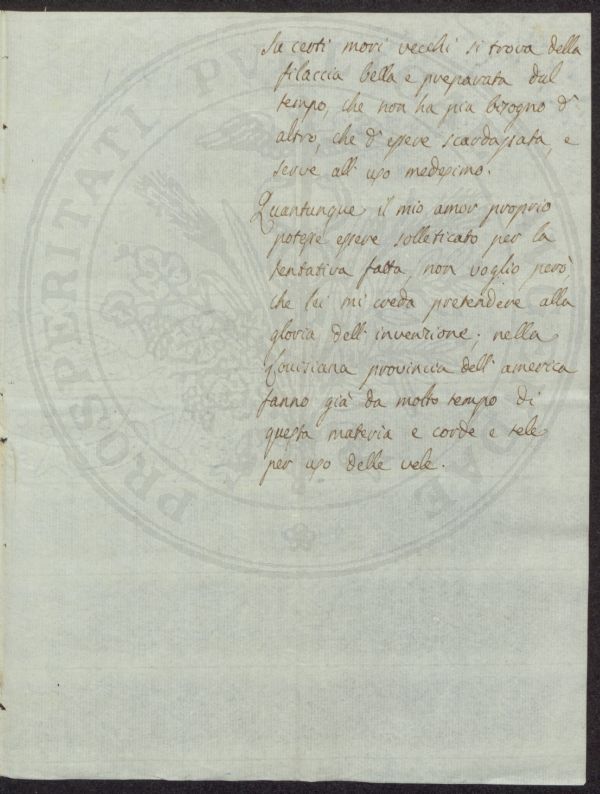 Su certi mori vecchi si trova della
filaccia bella e preparata dal
tempo, che non ha piu bisogno d'
altro, che d' essere scardassata, e
serve all' uso medesimo.
Quantunque il mio amor proprio
potesse essere solleticato per la
tentativa fatta, non voglio però
che lui mi creda pretendere alla
gloria dell' invenzione; nella
Louisiana provincia dell' america
fanno già da molto tempo di
questa materia e corde e tele
per uso delle vele.
PROSPERITATI